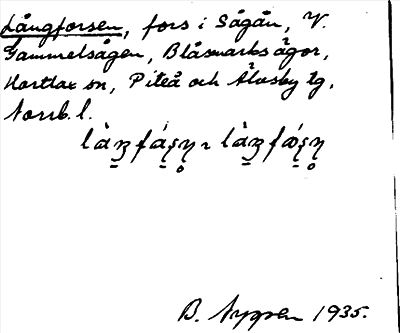 Långforsen, fors i Sågån, V.
Gammelsågen, Blåsmarks ägor,
Hortlax sn, Piteå och Älvsby tg,
Norrb. l.
B. Nygren 1935.